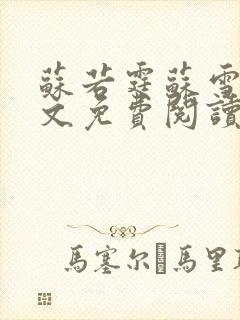 蘇若霆蘇雪
文免費閱讀
馬塞尔 馬里